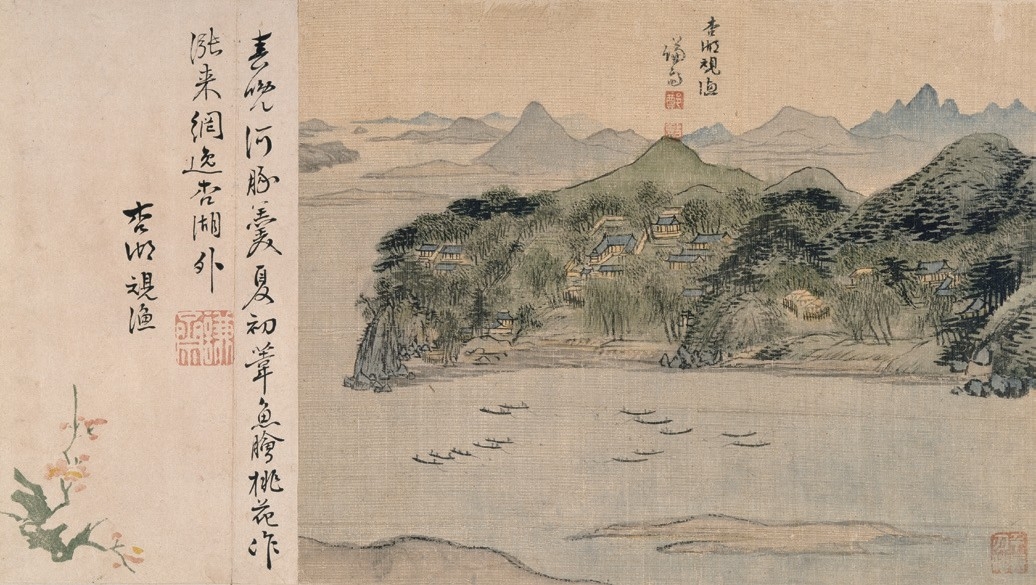 杏湖觀漁
謙齋
春晩河豚羹夏初葦魚膾桃花作
漲來網逸杏湖外
杏湖觀漁